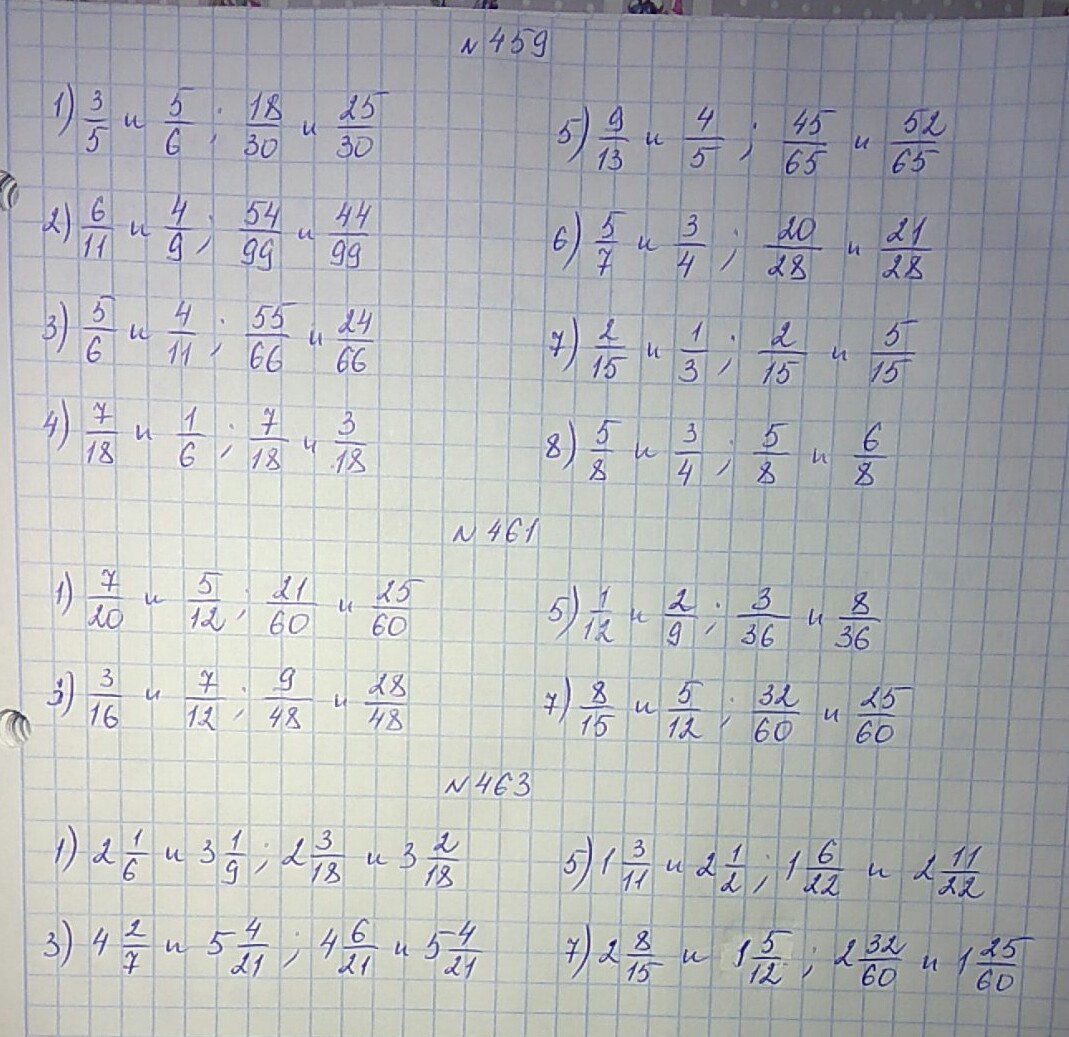 N 459
1) 3/5 и 5/6 ; 18/30 и 25/30
2) 6/11 и 4/9 ; 54/99 и 44/99
3) 5/6 и 4/11 ; 55/66 и 24/66
4) 7/18 и 1/6 ; 7/18 и 3/18
5) 9/13 и 4/5 ; 45/65 и 52/65
6) 5/7 и 3/4 ; 20/28 и 21/28
7) 2/15 и 1/3 ; 2/15 и 5/15
8) 5/8 и 3/4 ; 5/8 и 6/8
N 461
1) 7/20 и 5/12 ; 21/60 и 25/60
3) 3/16 и 7/12 ; 9/48 и 28/48
5) 1/12 и 2/9 ; 3/36 и 8/36
7) 8/15 и 5/12 ; 32/60 и 25/60
N 463
1) 2 1/6 и 3 1/9 ; 2 3/18 и 3 2/18
3) 4 2/7 и 5 4/21 ; 4 6/21 и 5 4/21
5) 1 3/11 и 2 1/2 ; 1 6/22 и 2 11/22
7) 2 8/15 и 1 5/12 ; 2 32/60 и 1 25/60